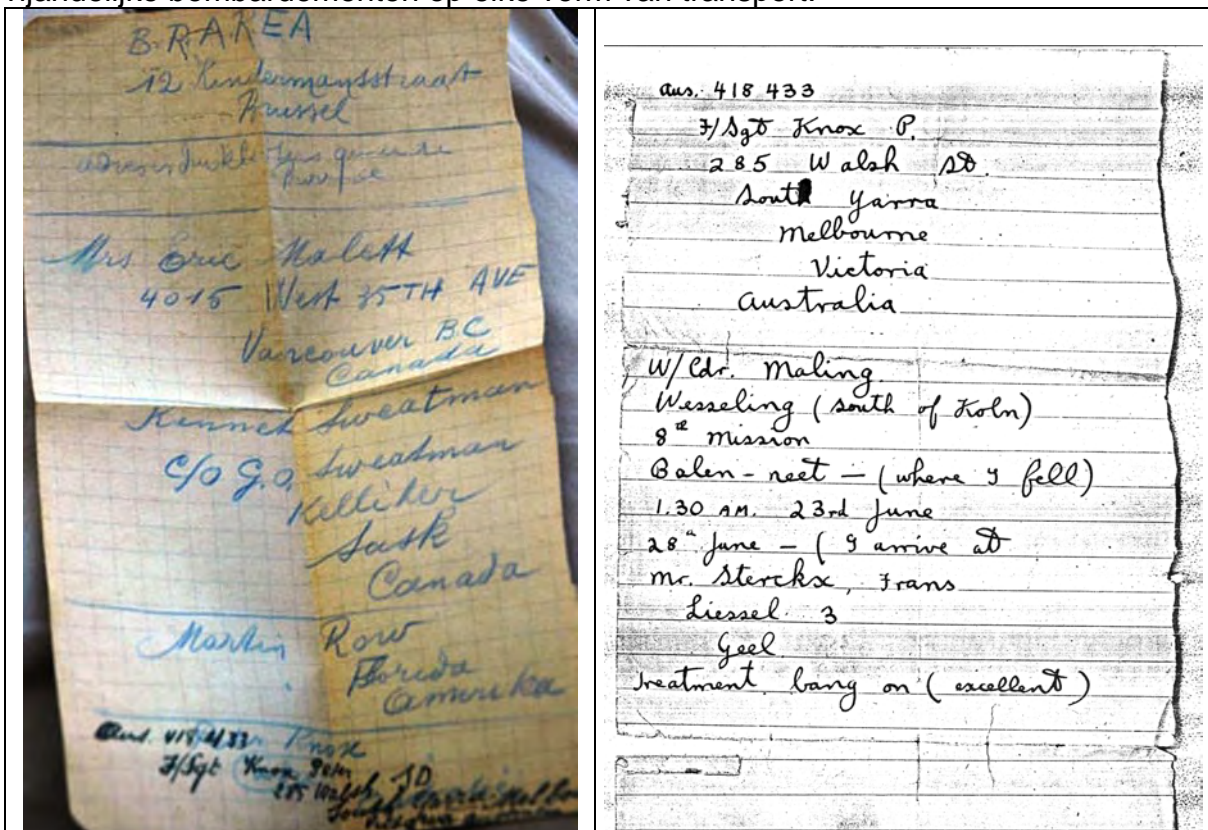 vijandelijke bombardementen op elke vorm van transport.
B.R.AREA
12
Brussel
Mrs Eric Malett
4015 West 35TH AVE
Vancouver B.C
Canada
Kennet Sweatman
C/O G.O. Sweatman
Kelliher
Sask
Canada
Martin Row
Florida
Amerika
Knox
Aus. 418433
F/Sgt Knox Peter
285 Walsh SD
South
Aus. 418 433
F/Sgt Knox P.
285 Walsh SD.
South Yarra
Melbourne
Victoria
Australia
W/Cdr. Maling
Wesseling (south of Koln)
8th mission
Balen-neet - (where I fell)
1.30 AM. 23rd June
28th June - (I arrive at
Mr. Sterckx, Frans
Liessel. 3
Geel
treatment bang on (excellent)